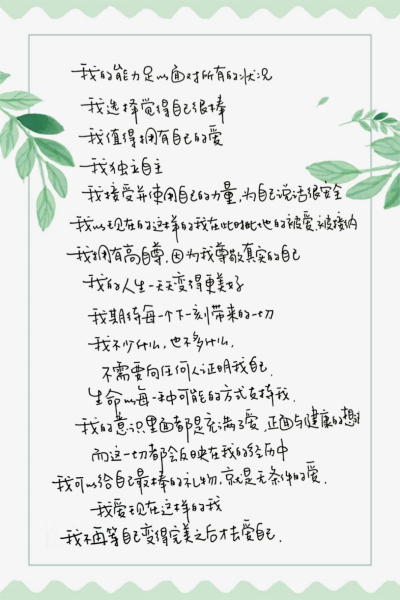 我的能力足以面对所有的状况
我选择觉得自己很棒
我值得拥有自己的爱
我独立自主
我接受并使用自己的力量,为自己说话很安全
我以现在的这样的我在此时此地的被爱被接纳
我拥有高自尊,因为我尊敬真实的自己
我的人生一天天变得更美好
我期待每一个下一刻带来的一切
我不少什么,也不多什么,
不需要向任何人证明我自己.
生命以每一种可能的方式支持我.
我的意识里面都是充满了爱,正面与健康的想法
而这一切都会反映在我的经历中
我可以给自己最棒的礼物,就是无条件的爱.
我爱现在这样的我
我不再等自己变得完美之后才去爱自己.